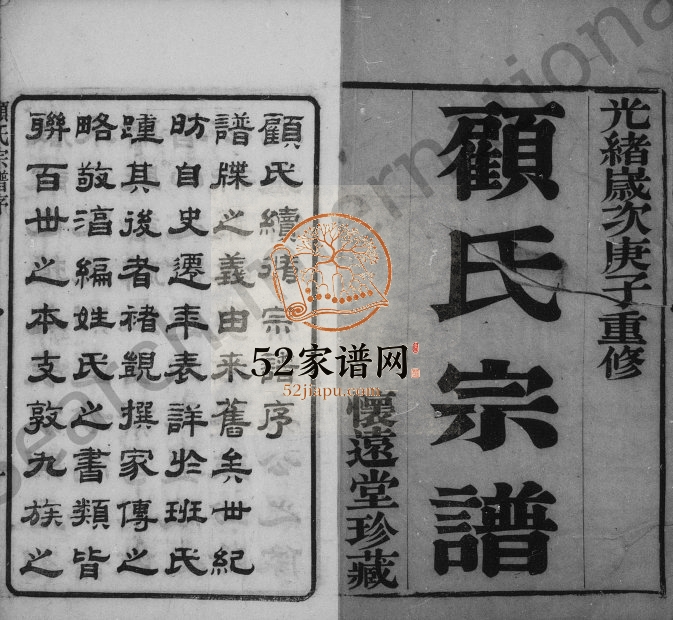 光緒歲次庚子重修
顧氏宗譜
懷遠堂珍藏
顧氏續諸宗譜序
譜牒之義由來舊矣世紀
昉自史遷年表詳於班氏
踵其後者褚覬撰家傳之
略敬濇編姓氏之書類皆
聯百世之本支敦九族之
顧氏宗譜序
52家谱网
52jiapu.com